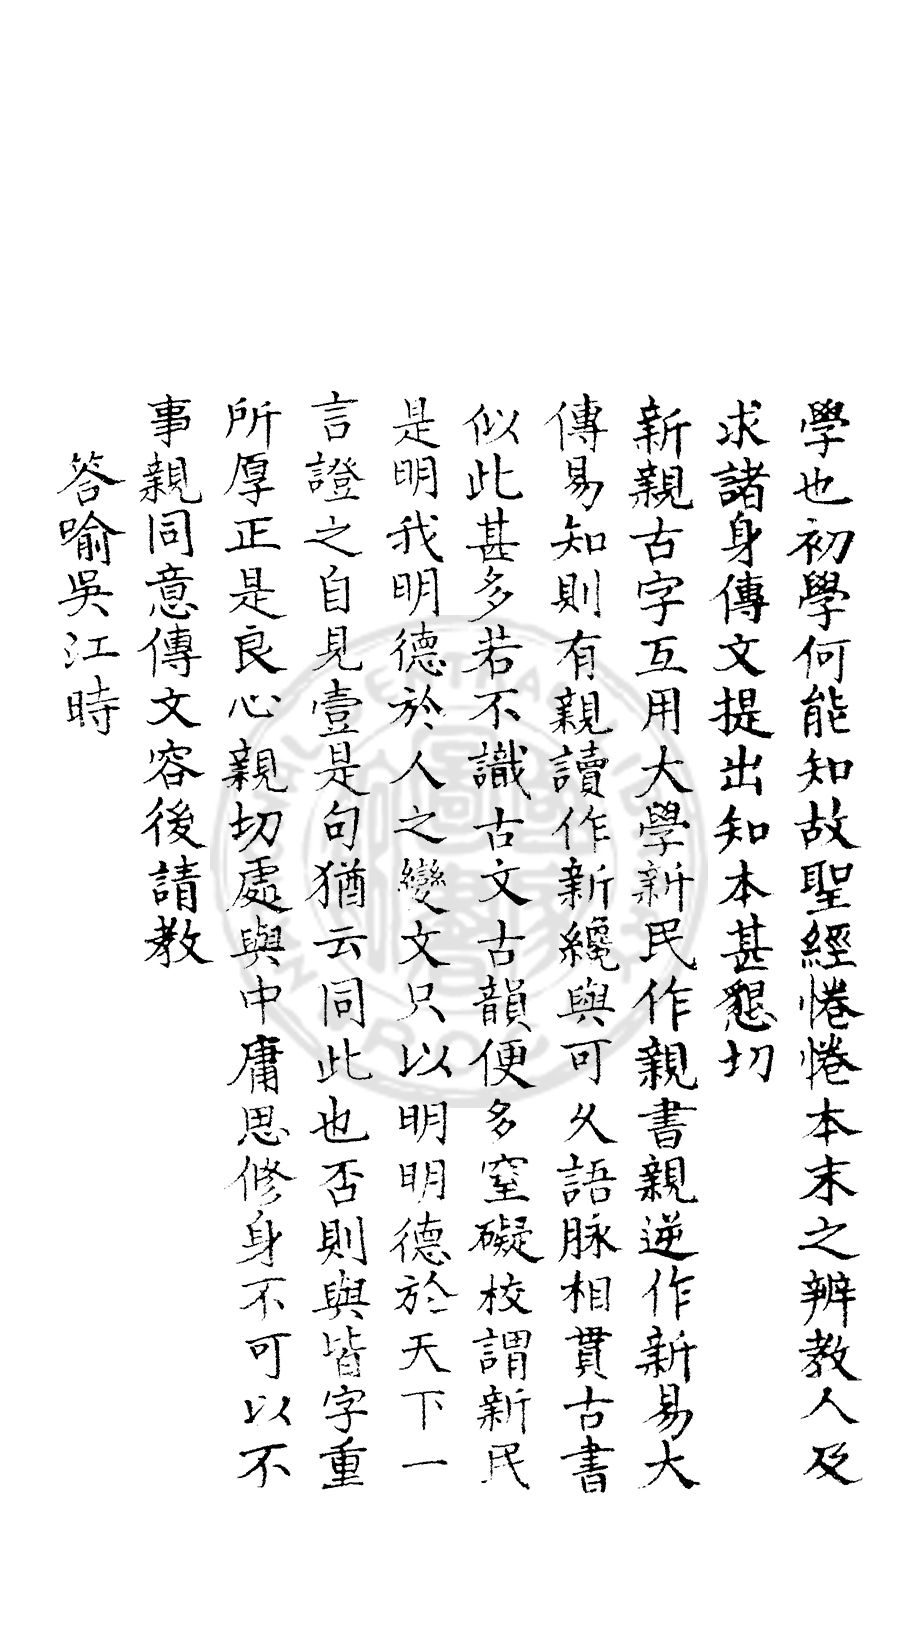 學也初學何能知故聖經惓惓本末之辨教人及
求諸身傳文提出知本甚懇切
新親古字互用大學新民作親書親逆作新易大
傳易知則有親讀作新纔與可久語脉相貫古書
似此甚多若不識古文古韻便多窒礙校謂新民
是明我明德於人之變文只以明明德於天下一
言證之自見壹是句猶云同此也否則與皆字重
所厚正是良心親切處與中庸思修身不可以不
事親同意傳文容後請教
答喻吳江時